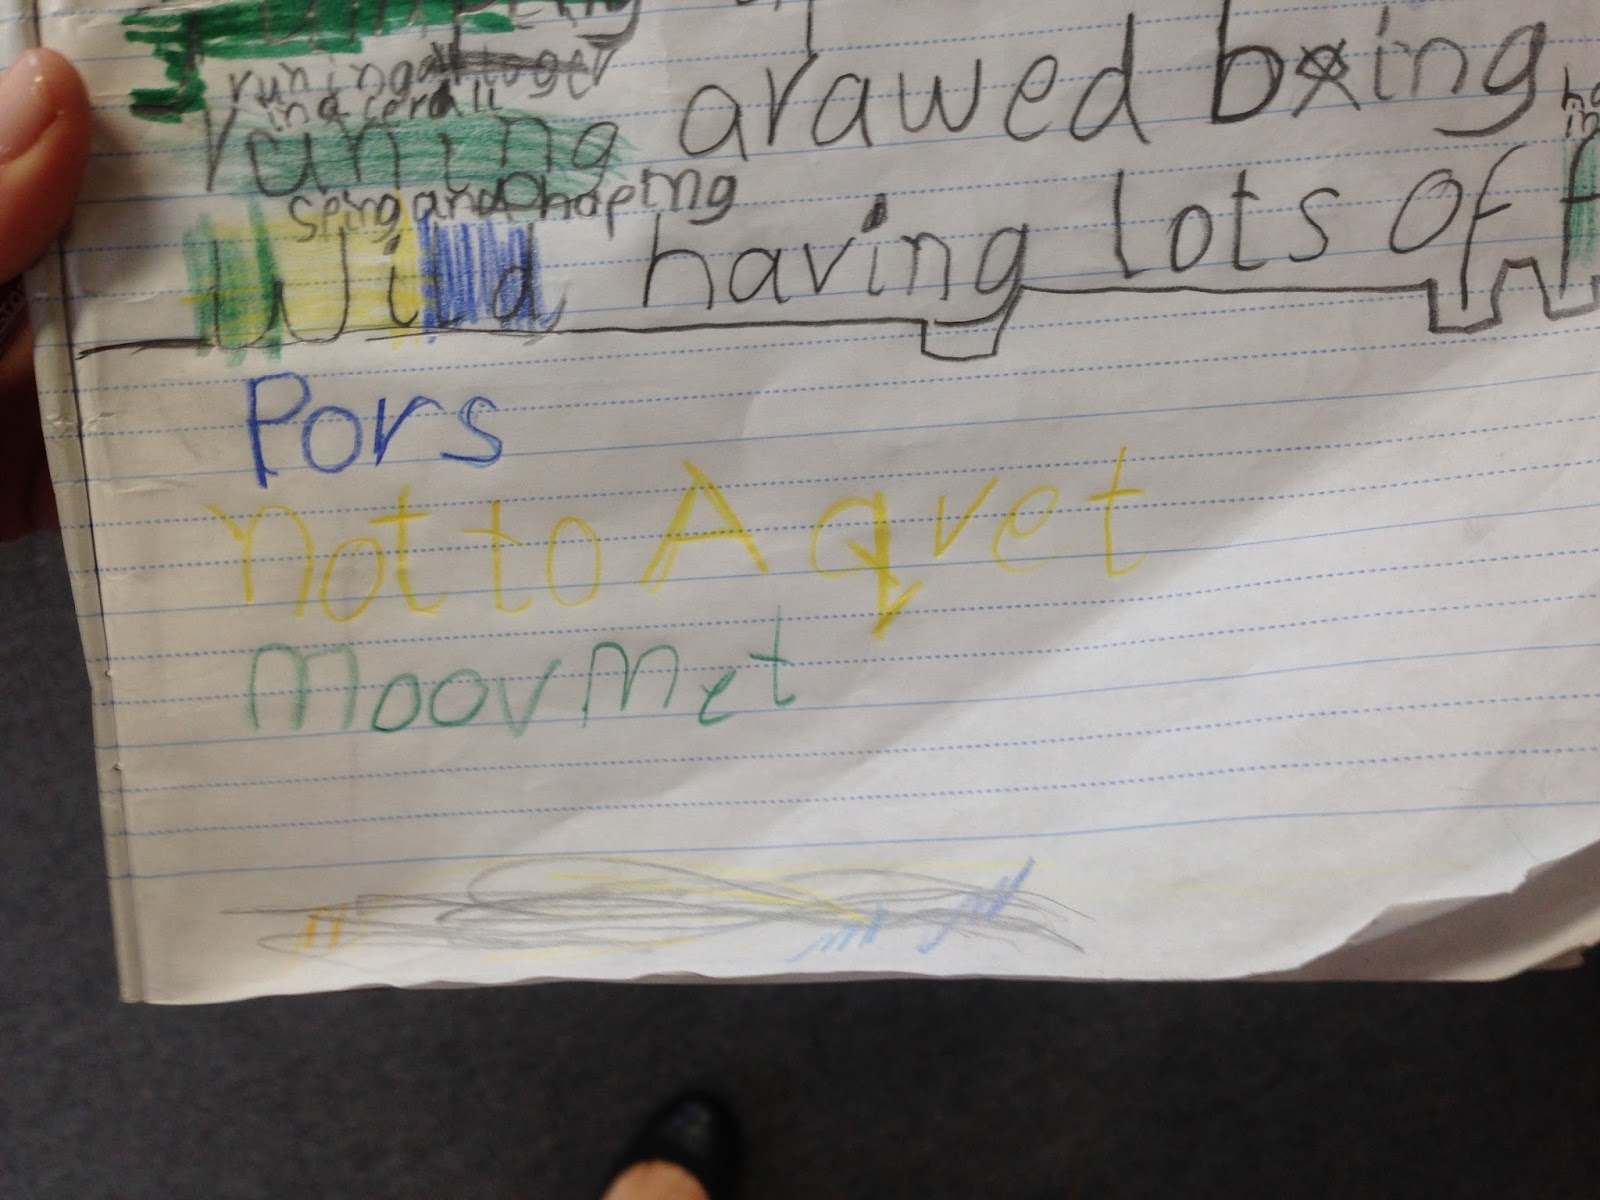 runing
runing arawed boing
sping and hoping
Wild having lots of
Pors
not to A qvet
moovmet